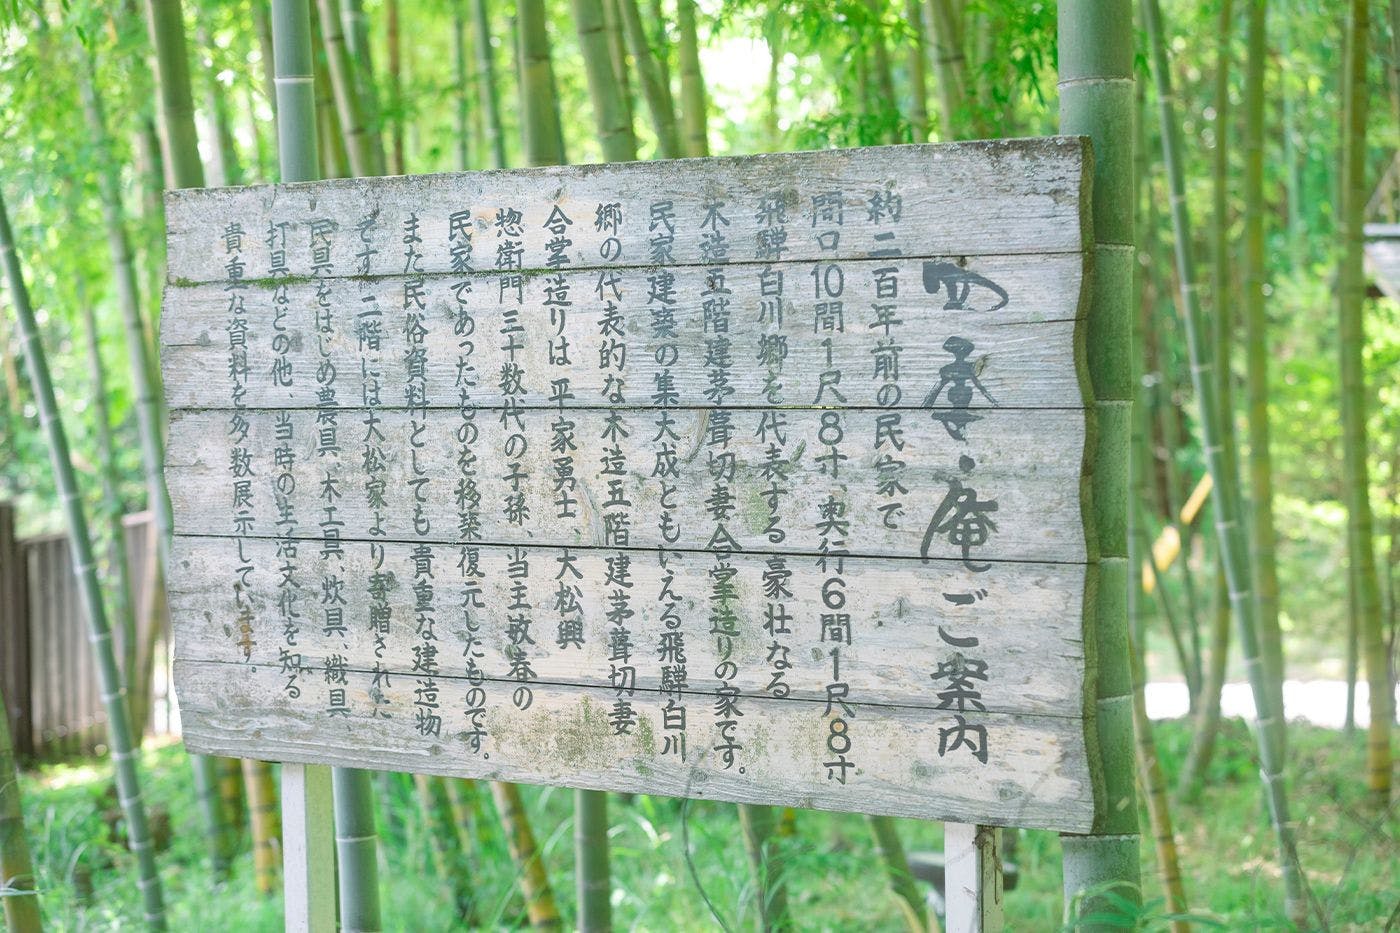 四季庵ご案内
約二百年前の民家で
間口10間1尺8寸、奥行6間1尺8寸
飛騨白川郷を代表する豪壮なる
木造五階建茅葺切妻合掌造りの家です。
民家建築の集大成ともいえる飛騨白川
郷の代表的な木造五階建茅葺切妻
合掌造りは平家勇士、大松興
惣衛門三十数代の子孫、当主敏春の
民家であったものを移築復元したものです。
また民俗資料としても貴重な建造物
です 二階には大松家より寄贈された
民具をはじめ農具、木工具、炊具、織具
打具などの他、当時の生活文化を知る
貴重な資料を多数展示しています。